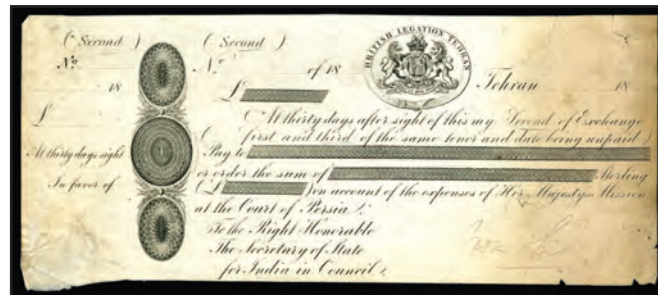 (Second)
No.
18
£
At thirty days sight
In favor of
(Second)
No. of 18
£
BRITISH LEGATION TEHRAN
Tehran 18
(At thirty days after sight of this my Second of Exchange
first and third of the same tenor and date being unpaid)
Pay to
or order the sum of Sterling
(£ ) on account of the expenses of Her Majestys Mission
at the Court of Persia
To the Right Honorable
The Secretary of State
for India in Council